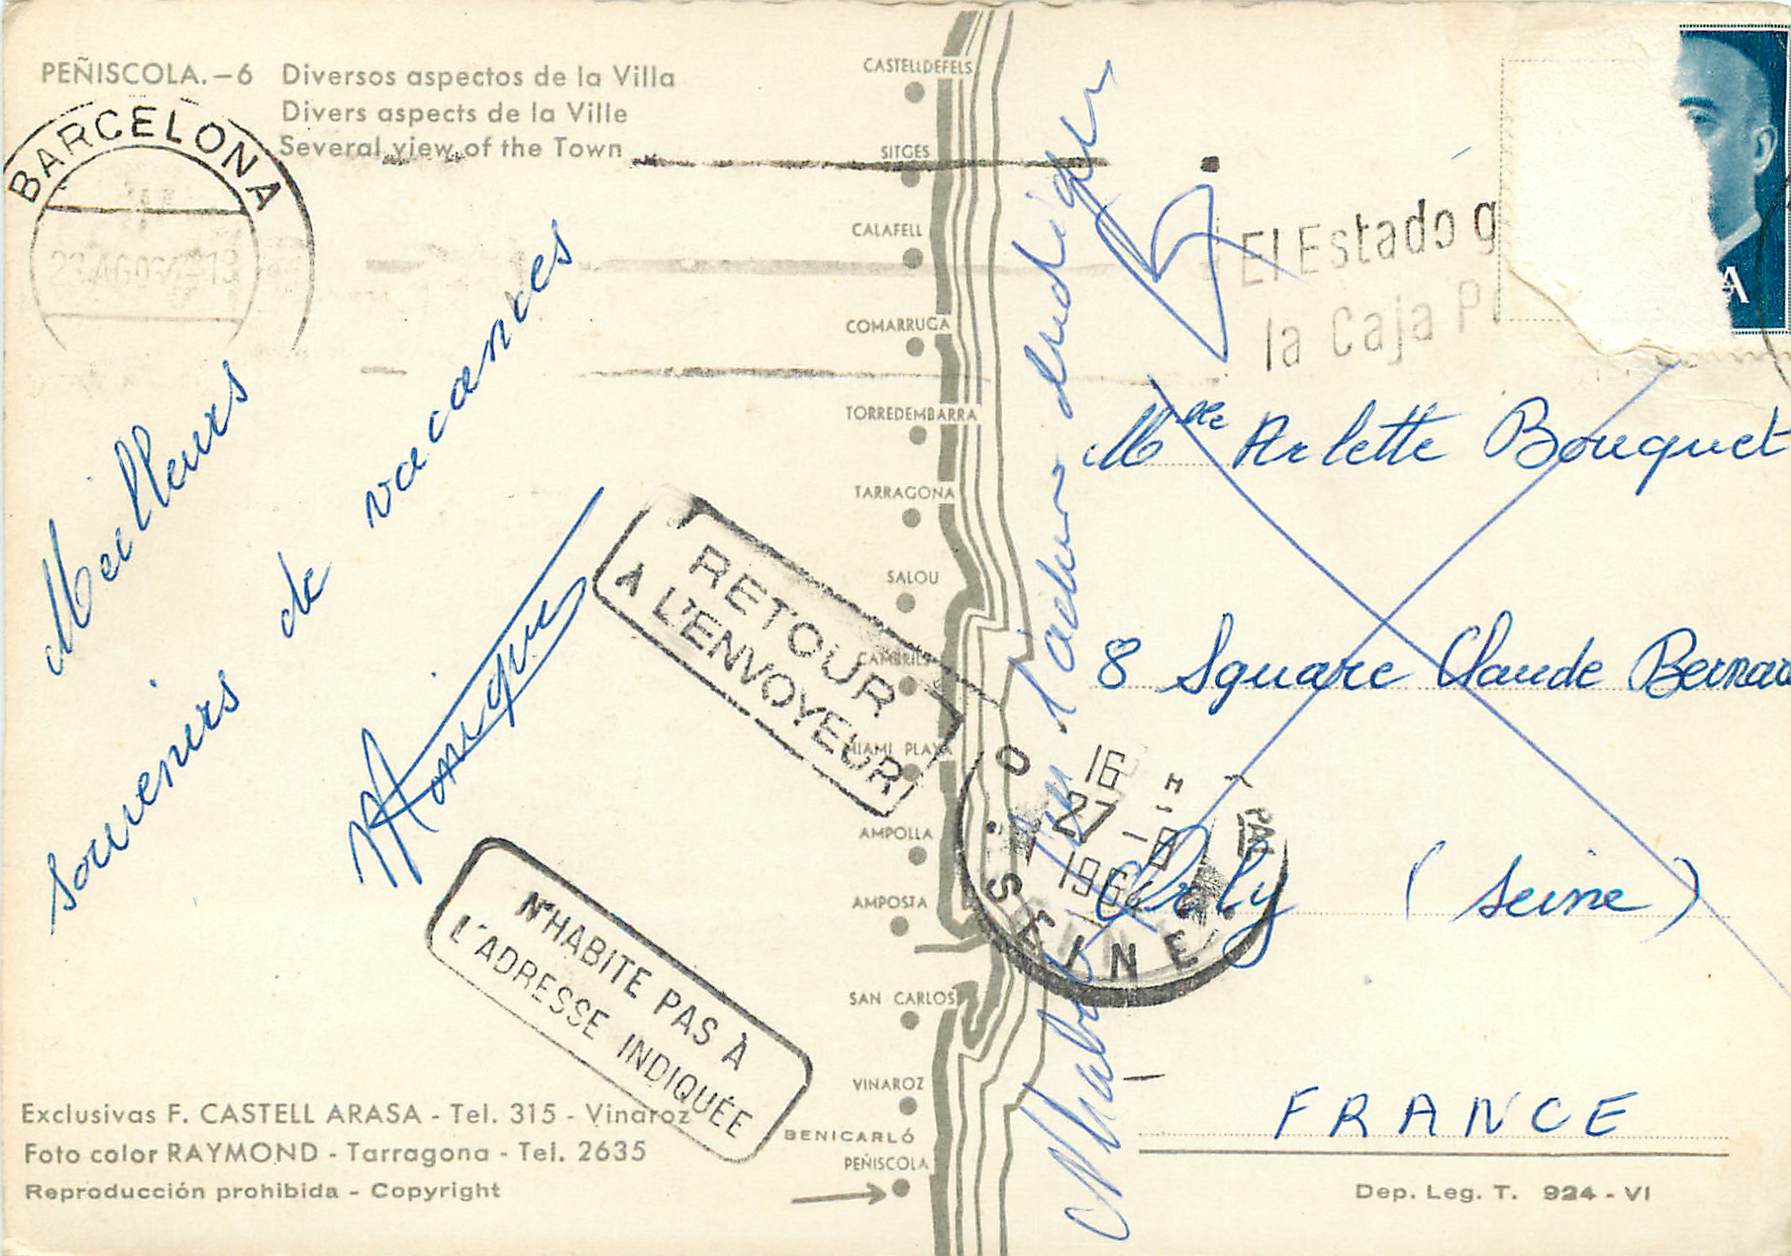 PEÑISCOLA.-6 Diversos aspectos de la Villa
Divers aspects de la Ville
Several view of the Town
BARCELONA
Meilleurs
souvenirs de vacances
Monique
RETOUR
À L'ENVOYEUR
N'HABITE PAS À
L'ADRESSE INDIQUÉE
Exclusivas F. CASTELL ARASA - Tel. 315 - Vinaroz
Foto color RAYMOND - Tarragona - Tel. 2635
Reproducción prohibida - Copyright
CASTELLDEFELS
SITGES
CALAFELL
COMARRUGA
TORREDEMBARRA
TARRAGONA
SALOU
CAMBRILS
MIAMI PLAYA
AMPOLLA
AMPOSTA
SAN CARLOS
VINAROZ
BENICARLÓ
PEÑISCOLA
N'habite pas l'adresse indiquée
El Estado g
la Caja P
A
Mlle Arlette Bouquet
8 Square Claude Bernard
Orly (Seine)
FRANCE
16 H
27 -8
1964
SEINE
Dep. Leg. T. 924 - VI